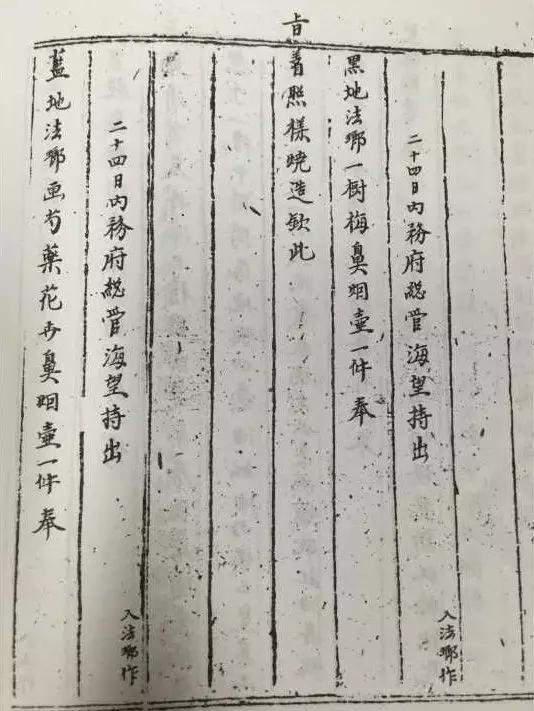 入法瑯作
二十四日內務府総管海望持出
黑地法瑯一樹梅鼻烟壺一件奉
旨着照樣燒造欽此
入法瑯作
二十四日內務府総管海望持出
藍地法瑯画芍藥花卉鼻烟壺一件奉